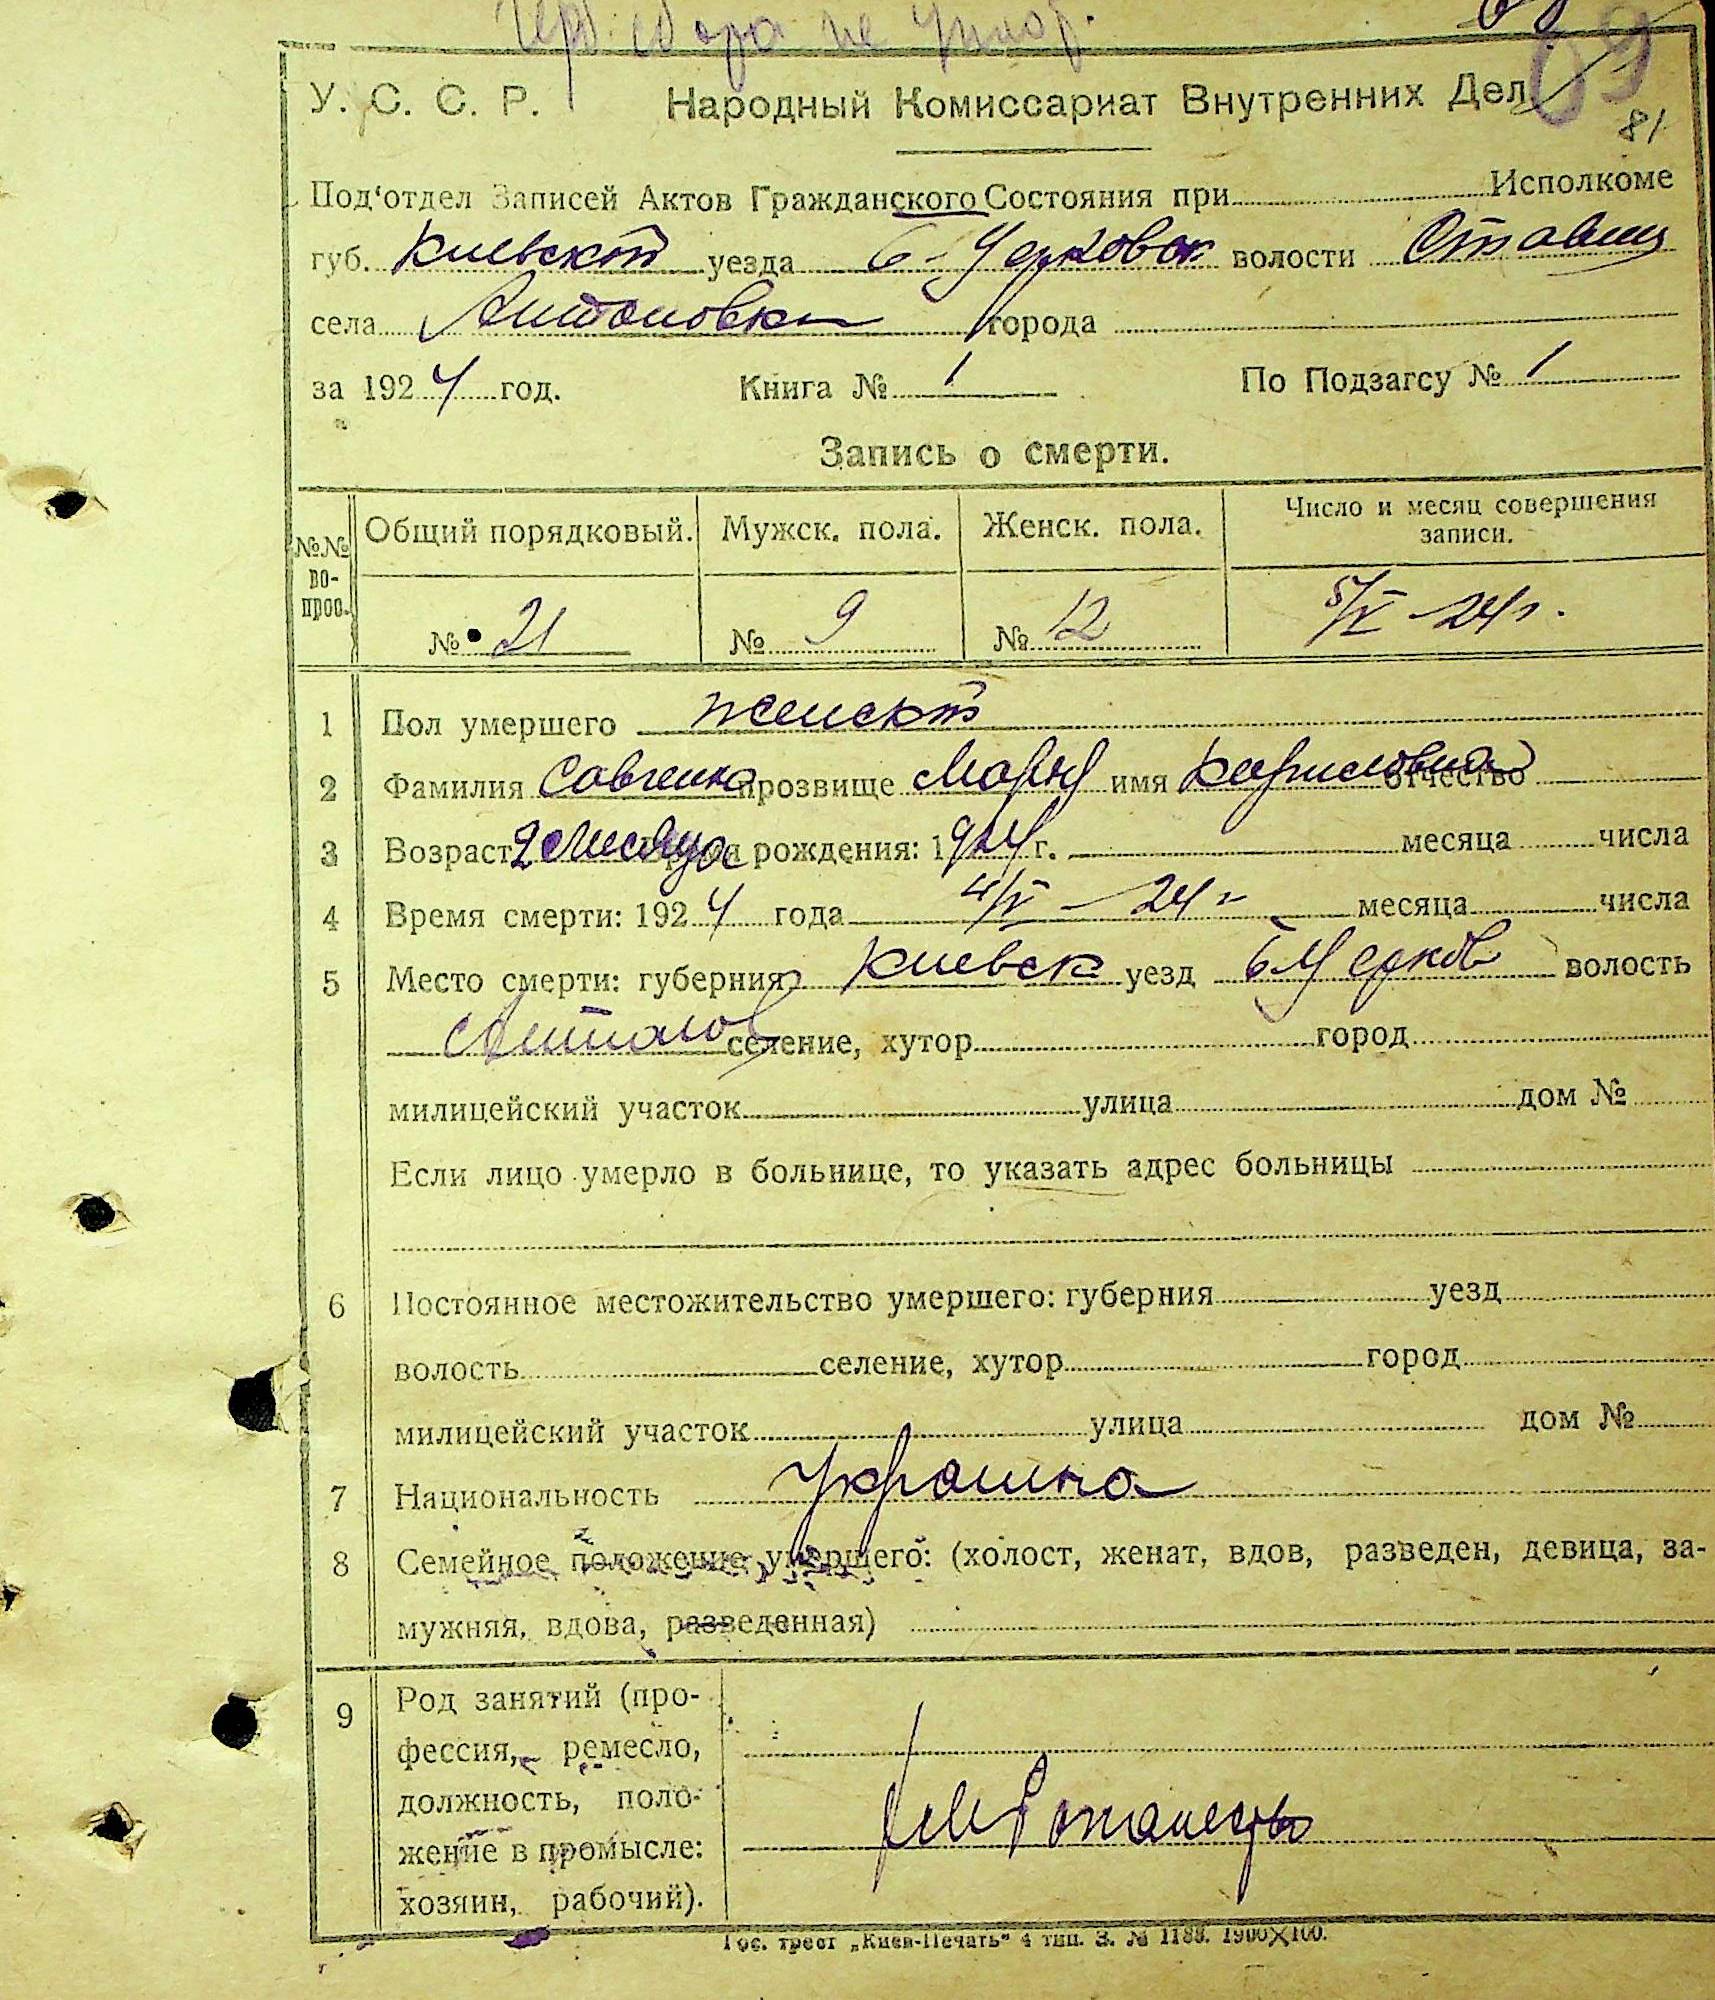 Герб. сбора не
69
81
У. С. С. Р. Народный Комиссариат Внутренних Дел
Под'отдел Записей Актов Гражданского Состояния при Исполкоме
губ. Киевской уезда Б-Церковск волости Ставищ
села Антоновки города
за 1924 год. Книга № 1 По Подзагсу № 1
Запись о смерти.
№№ вопрос. Общий порядковый. Мужск. пола. Женск. пола. Число и месяц совершения записи.
№ 21 № 9 № 12 5/V-24 г.
1 Пол умершего женской
2 Фамилия Савченко прозвище Мария имя Кириловна отчество
3 Возраст 2 месяца рождения: 1924 г. месяца числа
4 Время смерти: 1924 года 4/V-24 г месяца числа
5 Место смерти: губерния Киевск уезд Б Церков волость
Антонов селение, хутор город
милицейский участок улица дом №
Если лицо умерло в больнице, то указать адрес больницы
6 Постоянное местожительство умершего: губерния уезд
волость селение, хутор город
милицейский участок улица дом №
7 Национальность Украинка
8 Семейное положение умершего: (холост, женат, вдов, разведен, девица, за-
мужняя, вдова, разведенная)
9 Род занятий (про-
фессия, ремесло,
должность, поло-
жение в промысле:
хозяин, рабочий).
Гос. трест „Киев-Печать" 4 тип. З. № 1188. 1900×100.